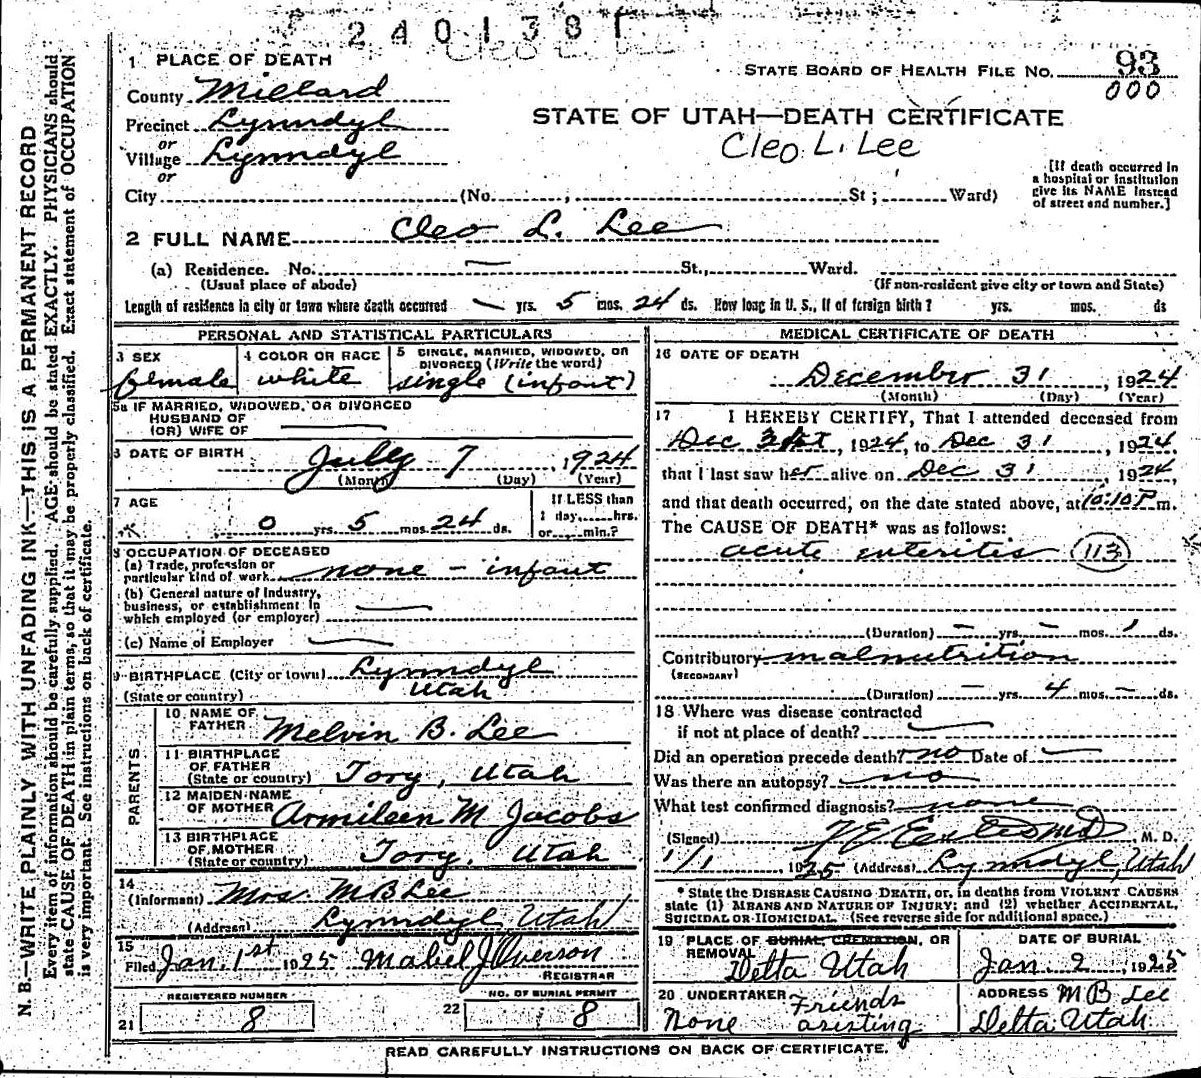 2401381
Cleo L
1 PLACE OF DEATH
STATE BOARD OF HEALTH FILE NO. 93
000
County Millard
Precinct Lynndyl
or
Village Lynndyl
or
STATE OF UTAH—DEATH CERTIFICATE
Cleo L. Lee
City (No. , St; Ward)
[If death occurred in
a hospital or institution
give its NAME instead
of street and number.]
2 FULL NAME Cleo L. Lee
(a) Residence. No. — St., Ward.
(Usual place of abode) (If non-resident give city or town and State)
Length of residence in city or town where death occurred — yrs. 5 mos. 24 ds. How long in U. S., if of foreign birth? yrs. mos. ds
PERSONAL AND STATISTICAL PARTICULARS
3 SEX
female
4 COLOR OR RACE
white
5 SINGLE, MARRIED, WIDOWED, OR
DIVORCED (Write the word)
single (infant)
5a IF MARRIED, WIDOWED, OR DIVORCED
HUSBAND OF
(OR) WIFE OF —
6 DATE OF BIRTH July 7, 1924
(Month) (Day) (Year)
7 AGE
0 yrs. 5 mos. 24 ds.
If LESS than
1 day, hrs.
or min.?
8 OCCUPATION OF DECEASED
(a) Trade, profession or
particular kind of work none - infant
(b) General nature of Industry,
business, or establishment in
which employed (or employer) —
(c) Name of Employer —
9 BIRTHPLACE (City or town) Lynndyl
(State or country) Utah
PARENTS
10 NAME OF
FATHER Melvin B. Lee
11 BIRTHPLACE
OF FATHER
(State or country) Tory, Utah
12 MAIDEN NAME
OF MOTHER Armileen M Jacobs
13 BIRTHPLACE
OF MOTHER
(State or country) Tory, Utah
14
(Informant) Mrs M B Lee
(Address) Lynndyl Utah
15
Filed Jan. 1st 1925 Mabel J Overson
REGISTRAR
REGISTERED NUMBER
21 8
NO. OF BURIAL PERMIT
22 8
MEDICAL CERTIFICATE OF DEATH
16 DATE OF DEATH
December 31, 1924
(Month) (Day) (Year)
17 I HEREBY CERTIFY, That I attended deceased from
Dec 31st, 1924, to Dec 31, 1924,
that I last saw her alive on Dec 31, 1924,
and that death occurred, on the date stated above, at 10:10 P m.
The CAUSE OF DEATH* was as follows:
acute enteritis (113)
(Duration) — yrs. — mos. 1 ds.
Contributory malnutrition
(SECONDARY)
(Duration) — yrs. 4 mos. — ds.
18 Where was disease contracted
if not at place of death? —
Did an operation precede death? no Date of —
Was there an autopsy? no
What test confirmed diagnosis? none
(Signed) M. D.
1/1 1925 (Address) Lynndyl, Utah
* State the DISEASE CAUSING DEATH, or, in deaths from VIOLENT CAUSES
state (1) MEANS AND NATURE OF INJURY; and (2) whether ACCIDENTAL,
SUICIDAL OR HOMICIDAL. (See reverse side for additional space.)
19 PLACE OF BURIAL, CREMATION, OR
REMOVAL
Delta Utah
DATE OF BURIAL
Jan. 2, 1925
20 UNDERTAKER Friends
None assisting
ADDRESS M B Lee
Delta Utah
READ CAREFULLY INSTRUCTIONS ON BACK OF CERTIFICATE.
N. B.—WRITE PLAINLY WITH UNFADING INK—THIS IS A PERMANENT RECORD
Every item of information should be carefully supplied. AGE should be stated EXACTLY. PHYSICIANS should
state CAUSE OF DEATH in plain terms, so that it may be properly classified. Exact statement of OCCUPATION
is very important. See instructions on back of certificate.